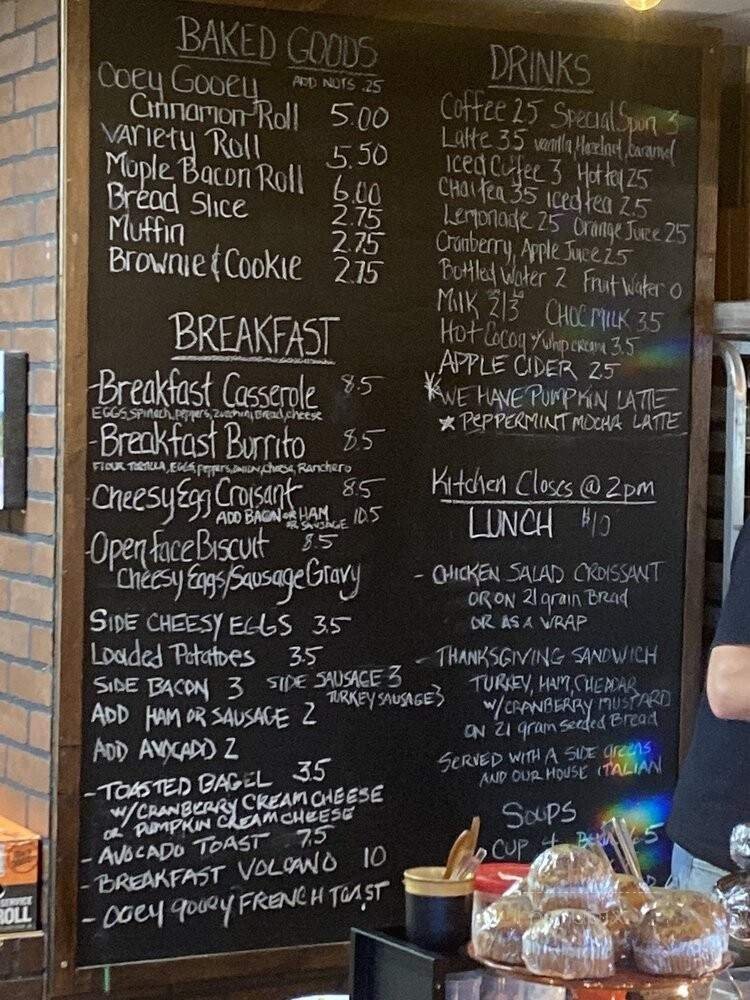 BAKED GOODS
Ooey Gooey ADD NUTS .25
Cinnamon Roll 5.00
Variety Roll 5.50
Maple Bacon Roll 6.00
Bread Slice 2.75
Muffin 2.75
Brownie & Cookie 2.75
BREAKFAST
- Breakfast Casserole 8.5
EGGS, Spinach, peppers, zucchini, Bread, cheese
- Breakfast Burrito 8.5
FLOUR TORTILLA, EGGS, peppers, onion, cheese, Ranchero
- Cheesy Egg Croisant 8.5
ADD BACON OR HAM OR SAUSAGE 10.5
- Open face Biscuit 8.5
Cheesy Eggs/Sausage Gravy
SIDE CHEESY EGGS 3.5
Loaded Potatoes 3.5
SIDE BACON 3 SIDE SAUSAGE 3
TURKEY SAUSAGE 3
ADD HAM OR SAUSAGE 2
ADD AVOCADO 2
- TOASTED BAGEL 3.5
W/CRANBERRY CREAM CHEESE
OR PUMPKIN CREAM CHEESE
- AVOCADO TOAST 7.5
- BREAKFAST VOLCANO 10
- OOEY gooey FRENCH TOAST
DRINKS
Coffee 25 Special Spun 3
Latte 35 vanilla, Hazelnut, Caramel
Iced Coffee 3 Hot tea 25
Chai tea 35 iced tea 2.5
Lemonade 25 Orange Juice 25
Cranberry, Apple Juice 25
Bottled Water 2 Fruit Water 0
Milk 2 3 CHOC MILK 3.5
Hot Cocoa w/whip cream 3.5
APPLE CIDER 2.5
* WE HAVE PUMPKIN LATTE
* PEPPERMINT MOCHA LATTE
Kitchen Closes @ 2pm
LUNCH $10
- CHICKEN SALAD CROISSANT
OR ON 21 grain Bread
OR AS A WRAP
- THANKSGIVING SANDWICH
TURKEY, HAM, CHEDDAR
W/CRANBERRY MUSTARD
ON 21 grain seeded Bread
SERVED WITH A SIDE greens
AND OUR HOUSE ITALIAN
SOUPS
CUP 4
SERVICE
ROLL